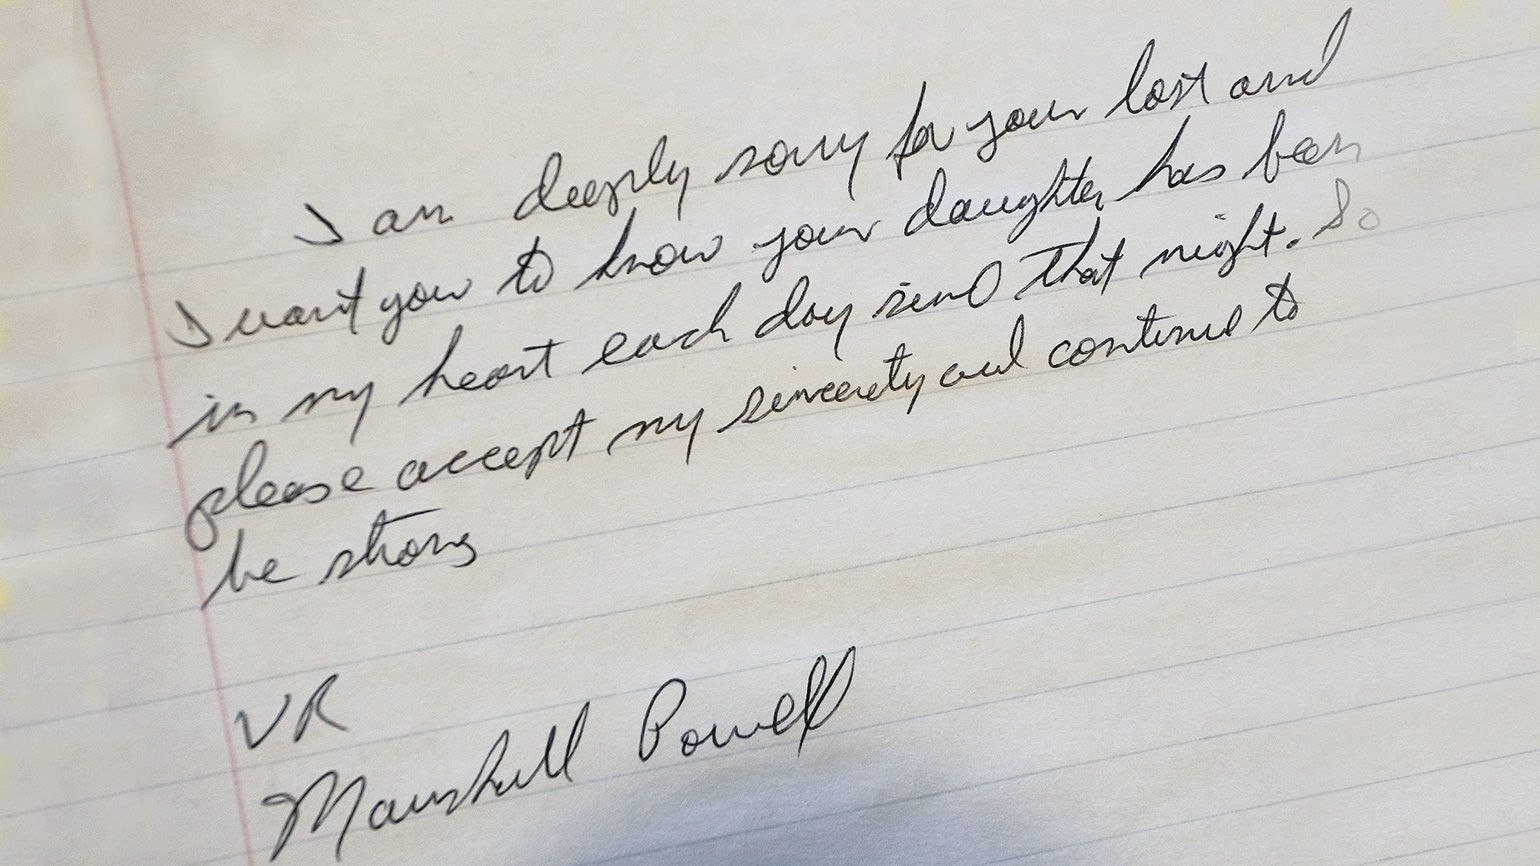 I am deeply sorry for your lost and
I want you to know your daughter has been
in my heart each day since that night. So
please accept my sincerety and continue to
be strong
VR
Marshall Powell